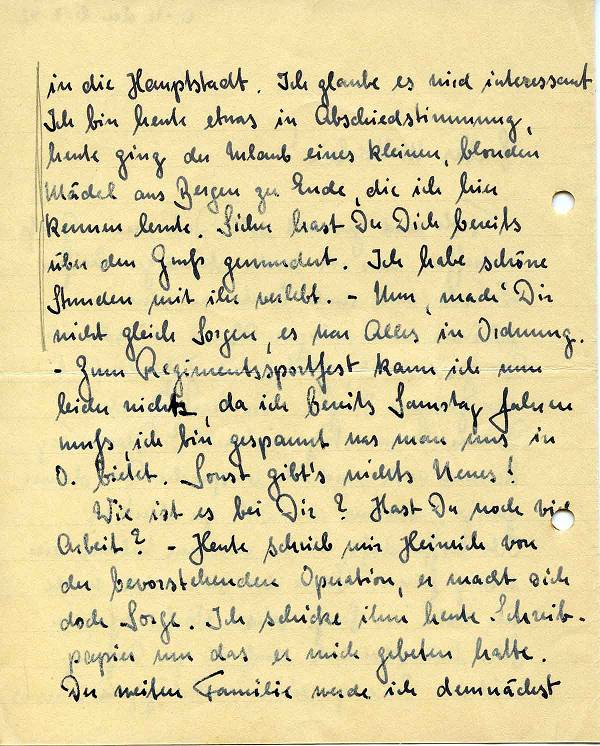 in die Hauptstadt. Ich glaube es wird interessant
Ich bin heute etwas in Abschiedstimmung,
heute ging der Urlaub eines kleinen, blonden
Mädel aus Bergen zu Ende, die ich hier
kennen lernte. Sicher hast Du Dich bereits
über den Gruß gewundert. Ich habe schöne
Stunden mit ihr verlebt. - Nun, mach' Dir
nicht gleich Sorgen, es war Alles in Ordnung.
- Zum Regimentssportfest kann ich nun
leider nicht, da ich bereits Samstag fahren
muß, ich bin gespannt was man uns in
O. bietet. Sonst gibt's nichts Neues!
Wie ist es bei Dir? Hast Du noch viel
Arbeit? - Heute schrieb mir Heinrich von
der bevorstehenden Operation, er macht sich
doch Sorge. Ich schicke ihm heute Schreib-
papier um das er mich gebeten hatte.
Der Familie werde ich demnächst